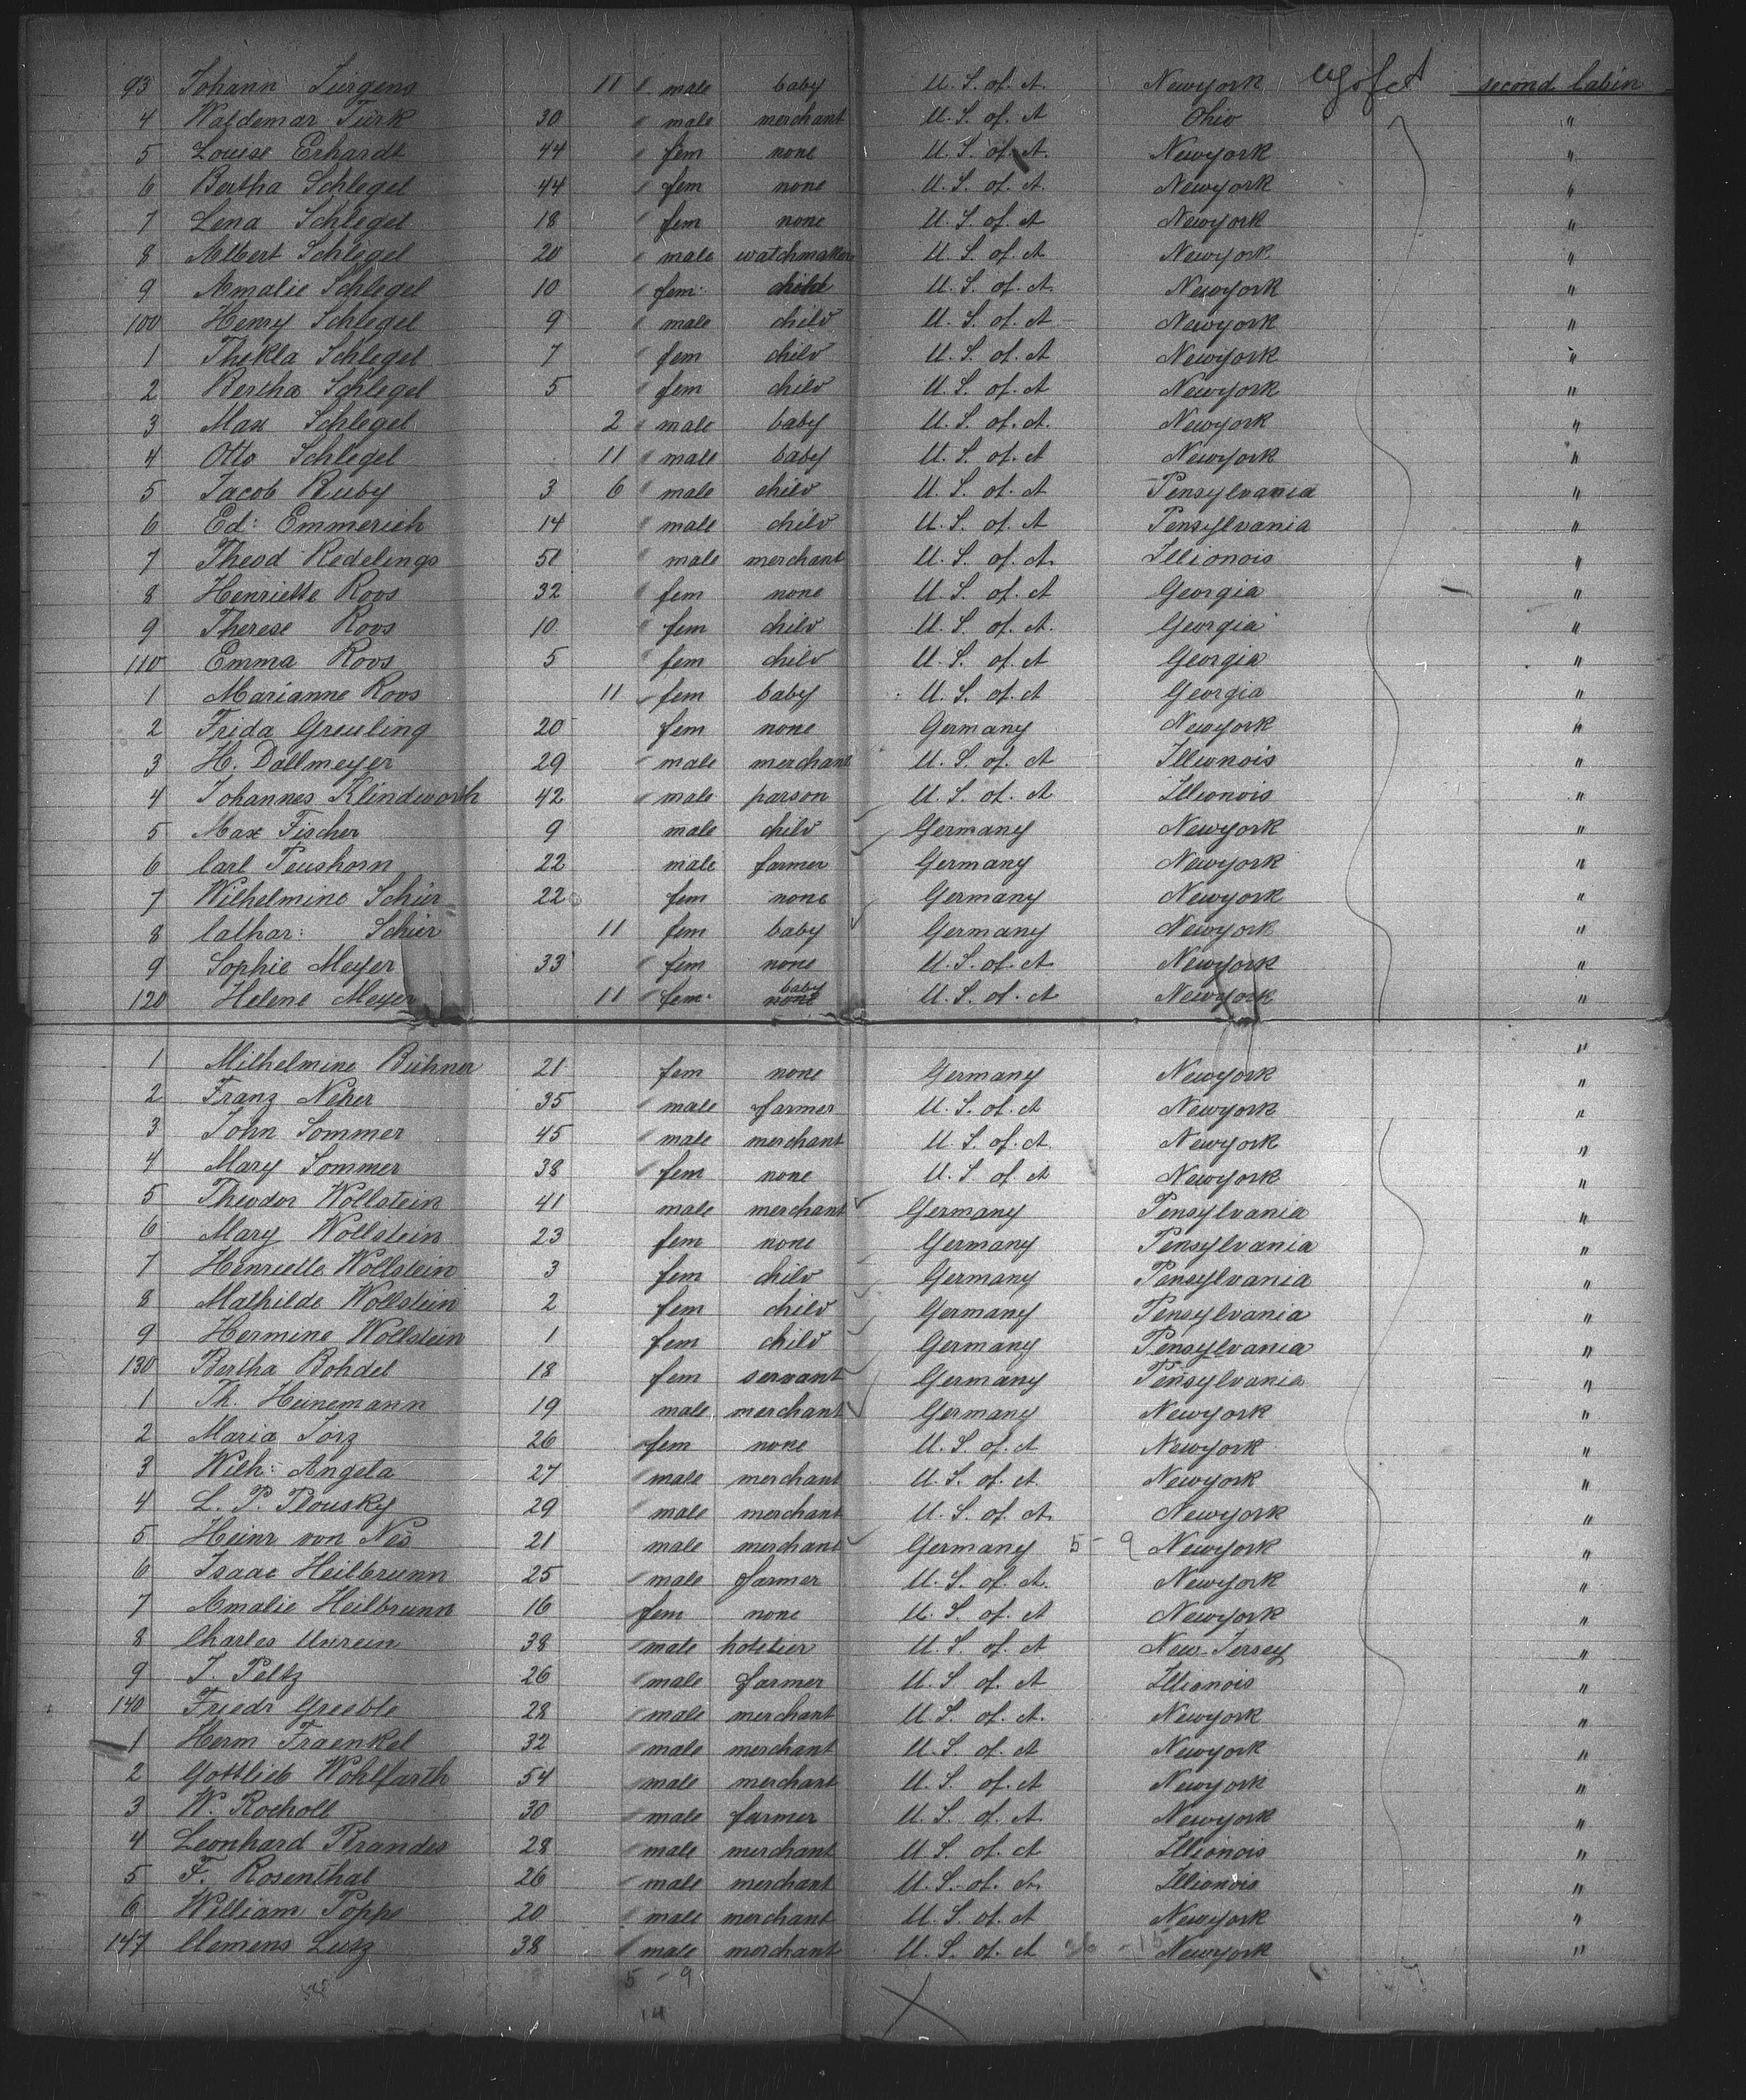 93 Johann Jürgens 11 male baby U. S. of. A. Newyork second Cabin
4 Waldemar Türk 30 male merchant U. S. of. A Ohio "
5 Louise Erhardt 44 fem none U. S. of. A. Newyork "
6 Bertha Schlegel 44 fem none U. S. of. A. Newyork "
7 Lena Schlegel 18 fem none U. S. of. A Newyork "
8 Albert Schlegel 20 male watchmaker U. S. of. A Newyork "
9 Amalie Schlegel 10 fem. child U. S. of. A. Newyork "
100 Henry Schlegel 9 male child U. S. of. A Newyork "
1 Thekla Schlegel 7 fem child U. S. of. A Newyork "
2 Bertha Schlegel 5 fem child U. S. of. A Newyork "
3 Max Schlegel 2 male baby U. S. of. A. Newyork "
4 Otto Schlegel 11 male baby U. S. of. A Newyork "
5 Jacob Ruby 3 6 male child U. S. of. A Pensylvania "
6 Ed: Emmerich 14 male child U. S. of. A Pensylvania "
7 Theod Redelings 51 male merchant U. S. of. A. Illionois "
8 Henriette Roos 32 fem none U. S. of. A Georgia "
9 Therese Roos 10 fem child U. S. of. A. Georgia "
110 Emma Roos 5 fem child U. S. of. A Georgia "
1 Marianne Roos 11 fem baby U. S. of. A Georgia "
2 Frida Greuling 20 fem none Germany Newyork "
3 H. Dallmeyer 29 male merchant U. S. of. A Illionois "
4 Johannes Klindworth 42 male parson U. S. of. A Illionois "
5 Max Fischer 9 male child Germany Newyork "
6 Carl Peushorn 22 male farmer Germany Newyork "
7 Wilhelmine Schier 22 fem none Germany Newyork "
8 Cathar: Schier 11 fem baby Germany Newyork "
9 Sophie Meyer 33 fem none U. S. of. A Newyork "
120 Helene Meyer 11 fem. none baby U. S. of. A Newyork "
"
1 Milhelmine Bühner 21 fem none Germany Newyork "
2 Franz Neher 35 male farmer U. S. of. A Newyork "
3 John Sommer 45 male merchant U. S. of. A. Newyork "
4 Mary Sommer 38 fem none U. S. of A Newyork "
5 Theodor Wollstein 41 male merchant Germany Pensylvania "
6 Mary Wollstein 23 fem none Germany Pensylvania "
7 Henriette Wollstein 3 fem child Germany Pensylvania "
8 Mathilde Wollstein 2 fem child Germany Pensylvania "
9 Hermine Wollstein 1 fem child Germany Pensylvania "
130 Bertha Bohdel 18 fem servant Germany Pensylvania "
1 Th. Heinemann 19 male merchant Germany Newyork "
2 Maria Jorz 26 fem none U. S. of. A Newyork "
3 Wilh: Angela 27 male merchant U. S. of. A. Newyork "
4 L. P. Plousky 29 male merchant U. S. of. A. Newyork "
5 Heinr von Nes 21 male merchant Germany 5 - 9 Newyork "
6 Isaac Heilbrunn 25 male farmer U. S. of. A. Newyork "
7 Amalie Heilbrunn 16 fem none U. S. of. A Newyork "
8 Charles Unrein 38 male hotelier U. S. of. A New-Jersey "
9 J. Peltz 26 male farmer U. S. of. A Illionois "
140 Friedr Greeble 28 male merchant U. S. of. A. Newyork "
1 Herm Fraenkel 32 male merchant U. S. of. A Newyork "
2 Gottlieb Wohlfarth 54 male merchant U. S. of. A Newyork "
3 W. Rocholl 30 male farmer U. S. of. A Newyork "
4 Leonhard Brandes 28 male merchant U. S. of A Illionois "
5 F. Rosenthal 26 male merchant U. S. of. A. Illionois "
6 William Poppe 20 male merchant U. S. of. A Newyork "
147 Clemens Lutz 38 male merchant U. S. of. A Newyork "
5 - 9
14